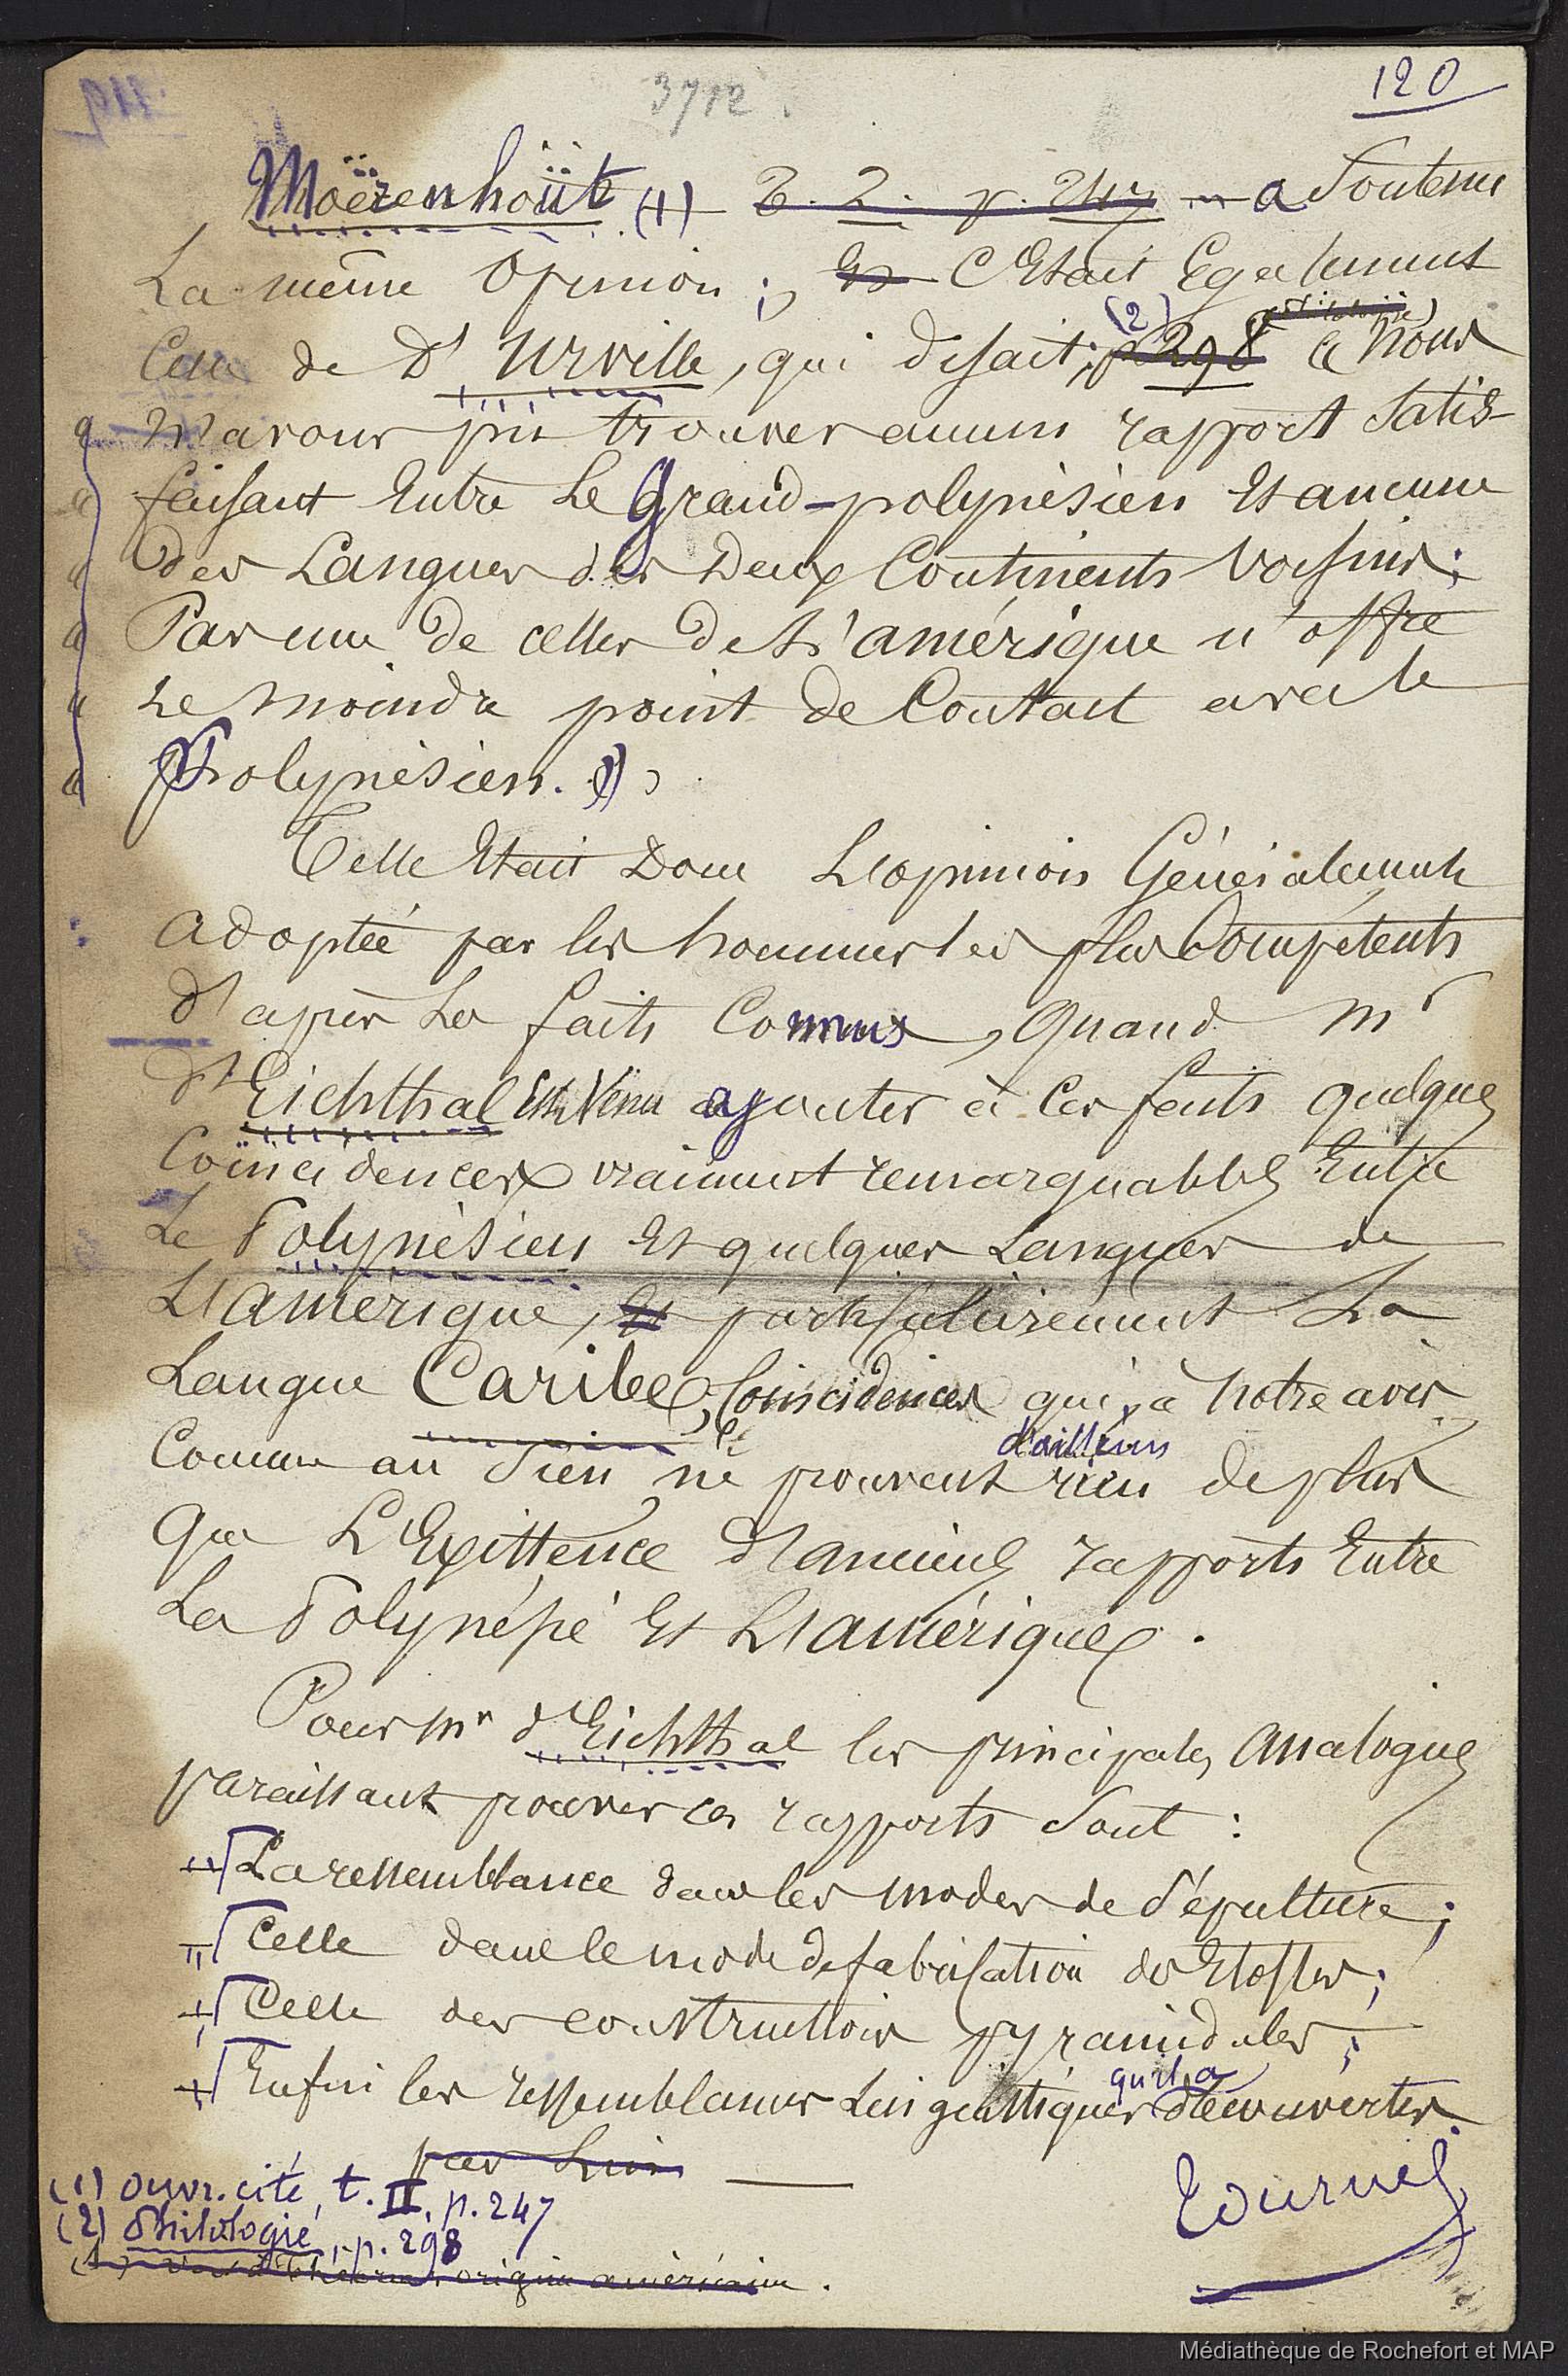 3712.
120
Moërenhoüt (1) T. 2. p. 247 — a Soutenu
La même Opinion ; Et C'Etait Egalement
Celle de D'Urville, qui disait ; (2) p 298 (philologie) « Nous
« n'avons pu trouver aucun rapport Satis-
« faisant Entre Le Grand-polynésien Et aucune
« des Langues des Deux Continents Voisins ;
« Pas une de celles De L'amérique n'offre
« Le moindre point De Contact avec le
« Polynésien. »
Telle Etait Donc L'opinion Généralement
adoptée par les hommes les plus Compétents
d'après Les faits Connus, quand Mr
d'Eichthal Est Venu ajouter à Ces faits quelques
Coïncidences vraiment remarquables Entre
Le Polynésien Et quelques Langues de
L'amérique, et particulièrement La
Langue Caribe, Coïncidences qui, à Notre avis
Comme au Sien ne prouvent d'ailleurs rien de plus
Que L'Existence D'anciens rapports Entre
La Polynésie Et L'amérique.
Pour Mr d'Eichthal les principales Analogies
paraissant prouver ces rapports Sont :
La ressemblance dans les modes de Sépulture ;
Celle dans le mode de fabrication des Etoffes ;
Celle des constructions pyramidales ;
Enfin les ressemblances Linguistiques qu'il a découvertes.
par Lui
Tournez
(1) Ouvr. cité, t. II, p. 247
(2) Philologie, p. 298
origine américaine.
Médiathèque de Rochefort et MAP